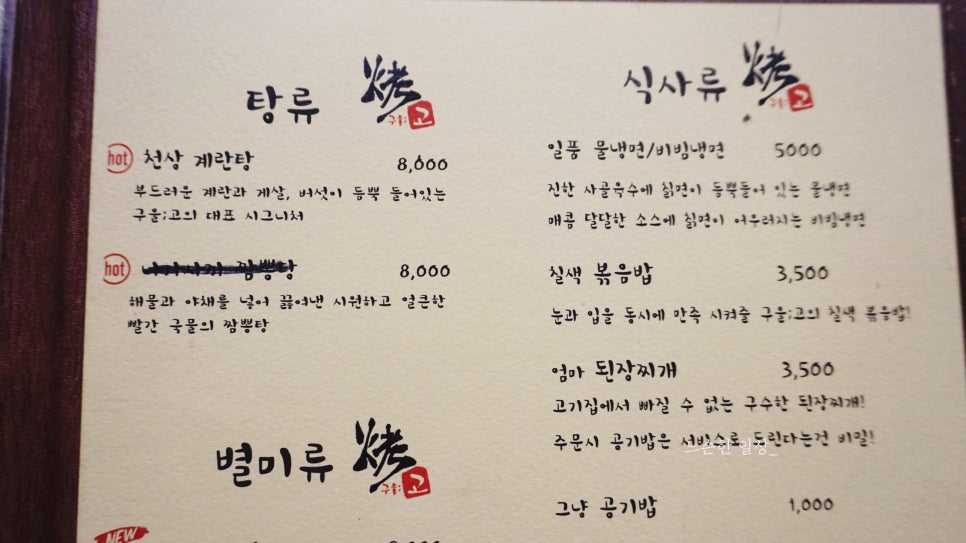 탕류 烤 구울; 고
hot 천상 계란탕 8,000
부드러운 계란과 게살, 버섯이 듬뿍 들어있는
구울;고의 대표 시그니처
hot 나가사끼 짬뽕탕 8,000
해물과 야채를 넣어 끓여낸 시원하고 얼큰한
빨간 국물의 짬뽕탕
별미류 烤 구울; 고
NEW
식사류 烤 구울; 고
일품 물냉면/비빔냉면 5000
진한 사골육수에 칡면이 듬뿍들어 있는 물냉면
매콤 달달한 소스에 칡면이 어우러지는 비빔냉면
칠색 볶음밥 3,500
눈과 입을 동시에 만족 시켜줄 구울;고의 칠색 볶음밥!
엄마 된장찌개 3,500
고기집에서 빠질 수 없는 구수한 된장찌개!
주문시 공기밥은 서비스로 드린다는건 비밀!
그냥 공기밥 1,000